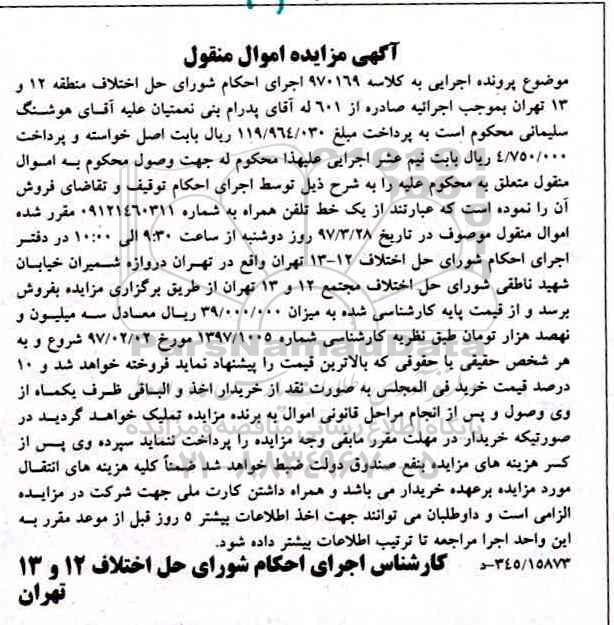 آگهی مزایده اموال منقول
موضوع پرونده اجرایی به کلاسه ۹۷۰۱۶۹ اجرای احکام شورای حل اختلاف منطقه ۱۲ و
۱۳ تهران بموجب اجرائیه صادره از ۶۰۱ له آقای پدرام بنی نعمتیان علیه آقـای هوشـنگ
سلیمانی محکوم است به پرداخت مبلغ ۱۱۹/۹۶۴/۰۳۰ ریال بابت اصل خواسته و پرداخت
۴/۷۵۰/۰۰۰ ریال بابت نیم عشر اجرایی علیهذا محکوم له جهت وصول محکوم بـه امـوال
منقول متعلق به محکوم علیه را به شرح ذیل توسط اجرای احکام توقیف و تقاضای فروش
آن را نموده است که عبارتند از یک خط تلفن همراه به شماره ۰۹۱۲۱۴۶۰۳۱۱ مقرر شده
اموال منقول موصوف در تاریخ ۹۷/۳/۲۸ روز دوشنبه از ساعت ۹:۳۰ الی ۱۰:۰۰ در دفتـر
اجرای احکام شورای حل اختلاف ۱۲-۱۳ تهران واقع در تهـران دروازه شـمیران خیابـان
شهید ناطقی شورای حل اختلاف مجتمع ۱۲ و ۱۳ تهران از طریق برگزاری مزایده بفروش
برسد و از قیمت پایه کارشناسی شده به میزان ۳۹/۰۰۰/۰۰۰ ریـال معـادل سـه میلیـون و
نهصد هزار تومان طبق نظریه کارشناسی شماره ۱۳۹۷/۱۰۰۵ مورخ ۹۷/۰۲/۰۲ شروع و به
هر شخص حقیقی یا حقوقی که بالاترین قیمت را پیشنهاد نماید فروخته خواهد شد و ۱۰
درصد قیمت خرید فی المجلس به صورت نقد از خریدار اخذ و الباقی ظرف یکماه از
وی وصول و پس از انجام مراحل قانونی اموال به برنده مزایده تملیک خواهـد گردیـد در
صورتیکه خریدار در مهلت مقرر مابقی وجه مزایده را پرداخت ننماید سپرده وی پـس از
کسر هزینه های مزایده بنفع صندوق دولت ضبط خواهد شد ضمناً کلیه هزینه های انتقال
مورد مزایده برعهده خریدار می باشد و همراه داشتن کارت ملی جهت شرکت در مزایـده
الزامی است و داوطلبان می توانند جهت اخذ اطلاعات بیشتر ۵ روز قبل از موعد مقرر بـه
این واحد اجرا مراجعه تا ترتیب اطلاعات بیشتر داده شود.
۳۴۵/۱۵۸۷۳-د
کارشناس اجرای احکام شورای حل اختلاف ۱۲ و ۱۳
تهران
ParsNamadData
پایگاه اطلاع رسانی مناقصه و مزایده
۰۲۱-۸۸۳۴۹۶۷۰-۵